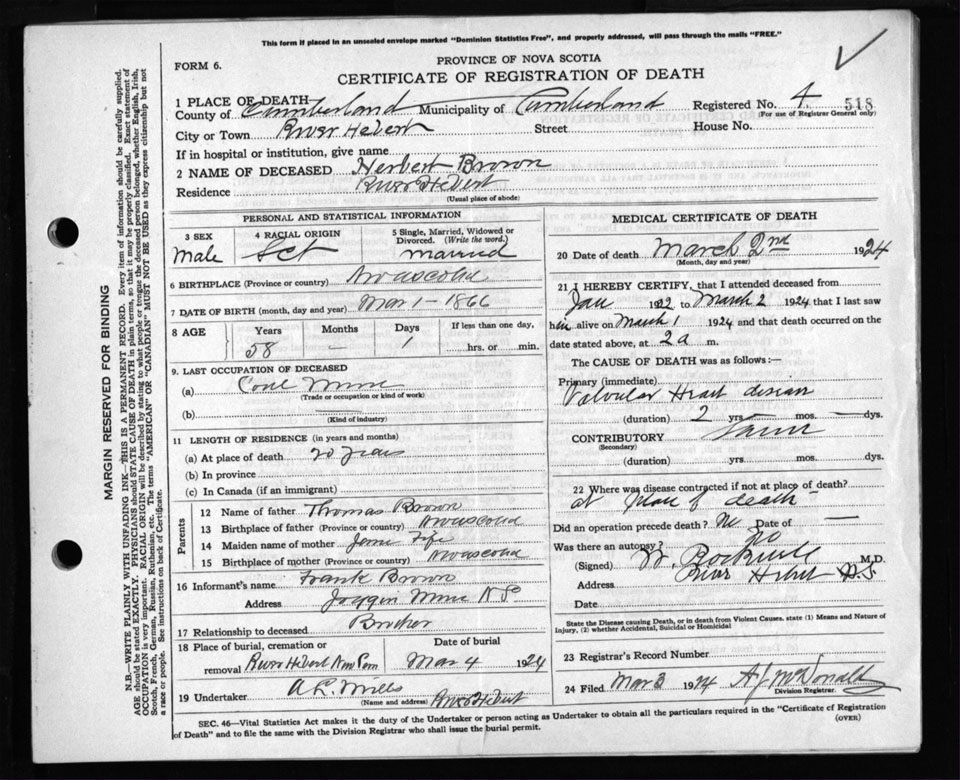 This form if placed in an unsealed envelope marked "Dominion Statistics Free", and properly addressed, will pass through the mails "FREE."
FORM 6.
PROVINCE OF NOVA SCOTIA
CERTIFICATE OF REGISTRATION OF DEATH
1 PLACE OF DEATH
County of Cumberland Municipality of Cumberland Registered No. 4 518
(For use of Registrar General only)
City or Town River Hebert Street House No.
If in hospital or institution, give name
2 NAME OF DECEASED Herbert Brown
Residence River Hebert
(Usual place of abode)
PERSONAL AND STATISTICAL INFORMATION
3 SEX 4 RACIAL ORIGIN 5 Single, Married, Widowed or Divorced. (Write the word.)
Male Sct married
6 BIRTHPLACE (Province or country) Novascotia
7 DATE OF BIRTH (month, day and year) Mar 1 - 1866
8 AGE Years Months Days If less than one day,
58 — 1 hrs. or min.
9. LAST OCCUPATION OF DECEASED
(a) Coal Mine
(Trade or occupation or kind of work)
(b)
(Kind of industry)
11 LENGTH OF RESIDENCE (in years and months)
(a) At place of death 20 years
(b) In province
(c) In Canada (if an immigrant)
Parents
12 Name of father Thomas Brown
13 Birthplace of father (Province or country) Novascotia
14 Maiden name of mother Fife
15 Birthplace of mother (Province or country) Novascotia
16 Informant's name Frank Brown
Address Joggin Mine N S
17 Relationship to deceased Brother
18 Place of burial, cremation or removal River Hebert Date of burial Mar 4 1924
19 Undertaker A L Mills River Hebert
(Name and address)
MEDICAL CERTIFICATE OF DEATH
20 Date of death March 2nd 1924
(Month, day and year)
21 I HEREBY CERTIFY, that I attended deceased from
Jan 1922 to March 2 1924 that I last saw
him alive on March 1 1924 and that death occurred on the
date stated above, at 2 a m.
The CAUSE OF DEATH was as follows:—
Primary (immediate)
Valvular Heart disease
(duration) 2 yrs. — mos. — dys.
CONTRIBUTORY
(Secondary)
(duration) yrs. mos. dys.
22 Where was disease contracted if not at place of death?
at place of death —
Did an operation precede death? No Date of —
Was there an autopsy? no
(Signed) W Rockwell M.D.
Address River Hebert N.S
Date
State the Disease causing Death, or in death from Violent Causes, state (1) Means and Nature of
Injury, (2) whether Accidental, Suicidal or Homicidal
23 Registrar's Record Number
24 Filed Mar 3 1924 A J McDonald
Division Registrar.
SEC. 46—Vital Statistics Act makes it the duty of the Undertaker or person acting as Undertaker to obtain all the particulars required in the "Certificate of Registration
of Death" and to file the same with the Division Registrar who shall issue the burial permit.
(OVER)
MARGIN RESERVED FOR BINDING
N.B.—WRITE PLAINLY WITH UNFADING INK—THIS IS A PERMANENT RECORD. Every item of information should be carefully supplied.
AGE should be stated EXACTLY. PHYSICIANS should STATE CAUSE OF DEATH in plain terms, so that it may be properly classified. Exact statement of
OCCUPATION is very important. RACIAL ORIGIN will be described by stating to what people or tongue the deceased person belonged, whether English, Irish,
Scotch, French, German, Russian, Ruthenian, etc. The terms "AMERICAN" OR "CANADIAN" MUST NOT BE USED as they express citizenship but not
a race or people. See instructions on back of Certificate.